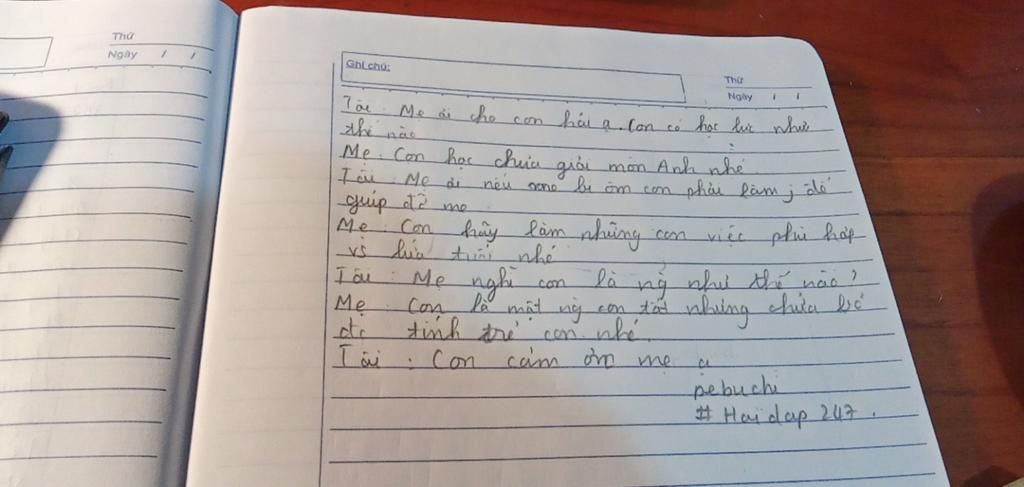 Thứ
Ngày / /
Ghi chú:
Thứ
Ngày / /
Tôi : Mẹ ơi cho con hỏi ạ. Con có học lực như
thế nào
Mẹ : Con học chưa giỏi môn Anh nhé
Tôi : Mẹ ơi nếu mẹ bị ốm con phải làm j để
giúp đỡ mẹ
Mẹ : Con hãy làm những con việc phù hợp
vs lứa tuổi nhé
Tôi : Mẹ nghĩ con là ng như thế nào?
Mẹ : Con là một ng con tốt nhưng chưa bỏ
đc tính trẻ con nhé.
Tôi : Con cảm ơn mẹ ạ
pebuchi
# Hoidap 247.